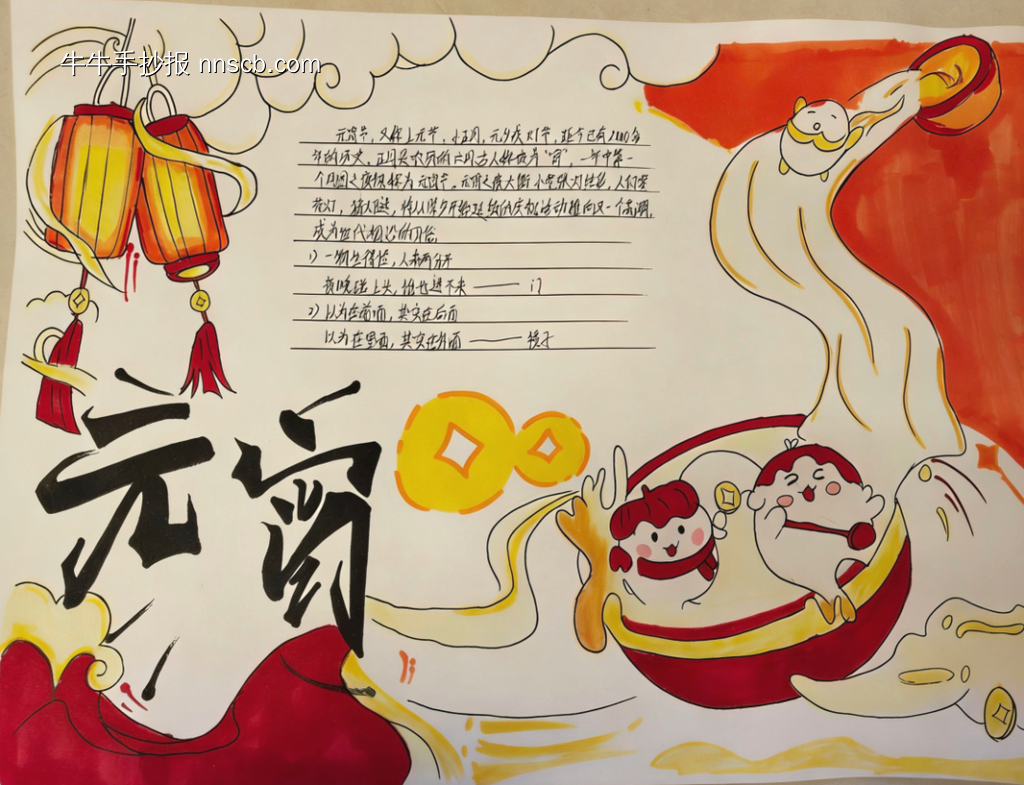 牛牛手抄报 nnscb.com
元宵节,又称上元节,小正月,元夕或灯节,距今已有2000多
年的历史,正月是农历的元月古人称夜为“宵”,一年中第一
个月圆之夜被称为元宵节。元宵之夜大街小巷张灯结彩,人们赏
花灯,猜灯谜,将从除夕开始延续的庆祝活动推向又一个高潮,
成为世代相沿的习俗
1)一物生得怪,人来两分开
夜晚碰上头,谁也进不来——门
2)以为在前面,其实在后面
以为在里面,其实在外面——镜子
元宵